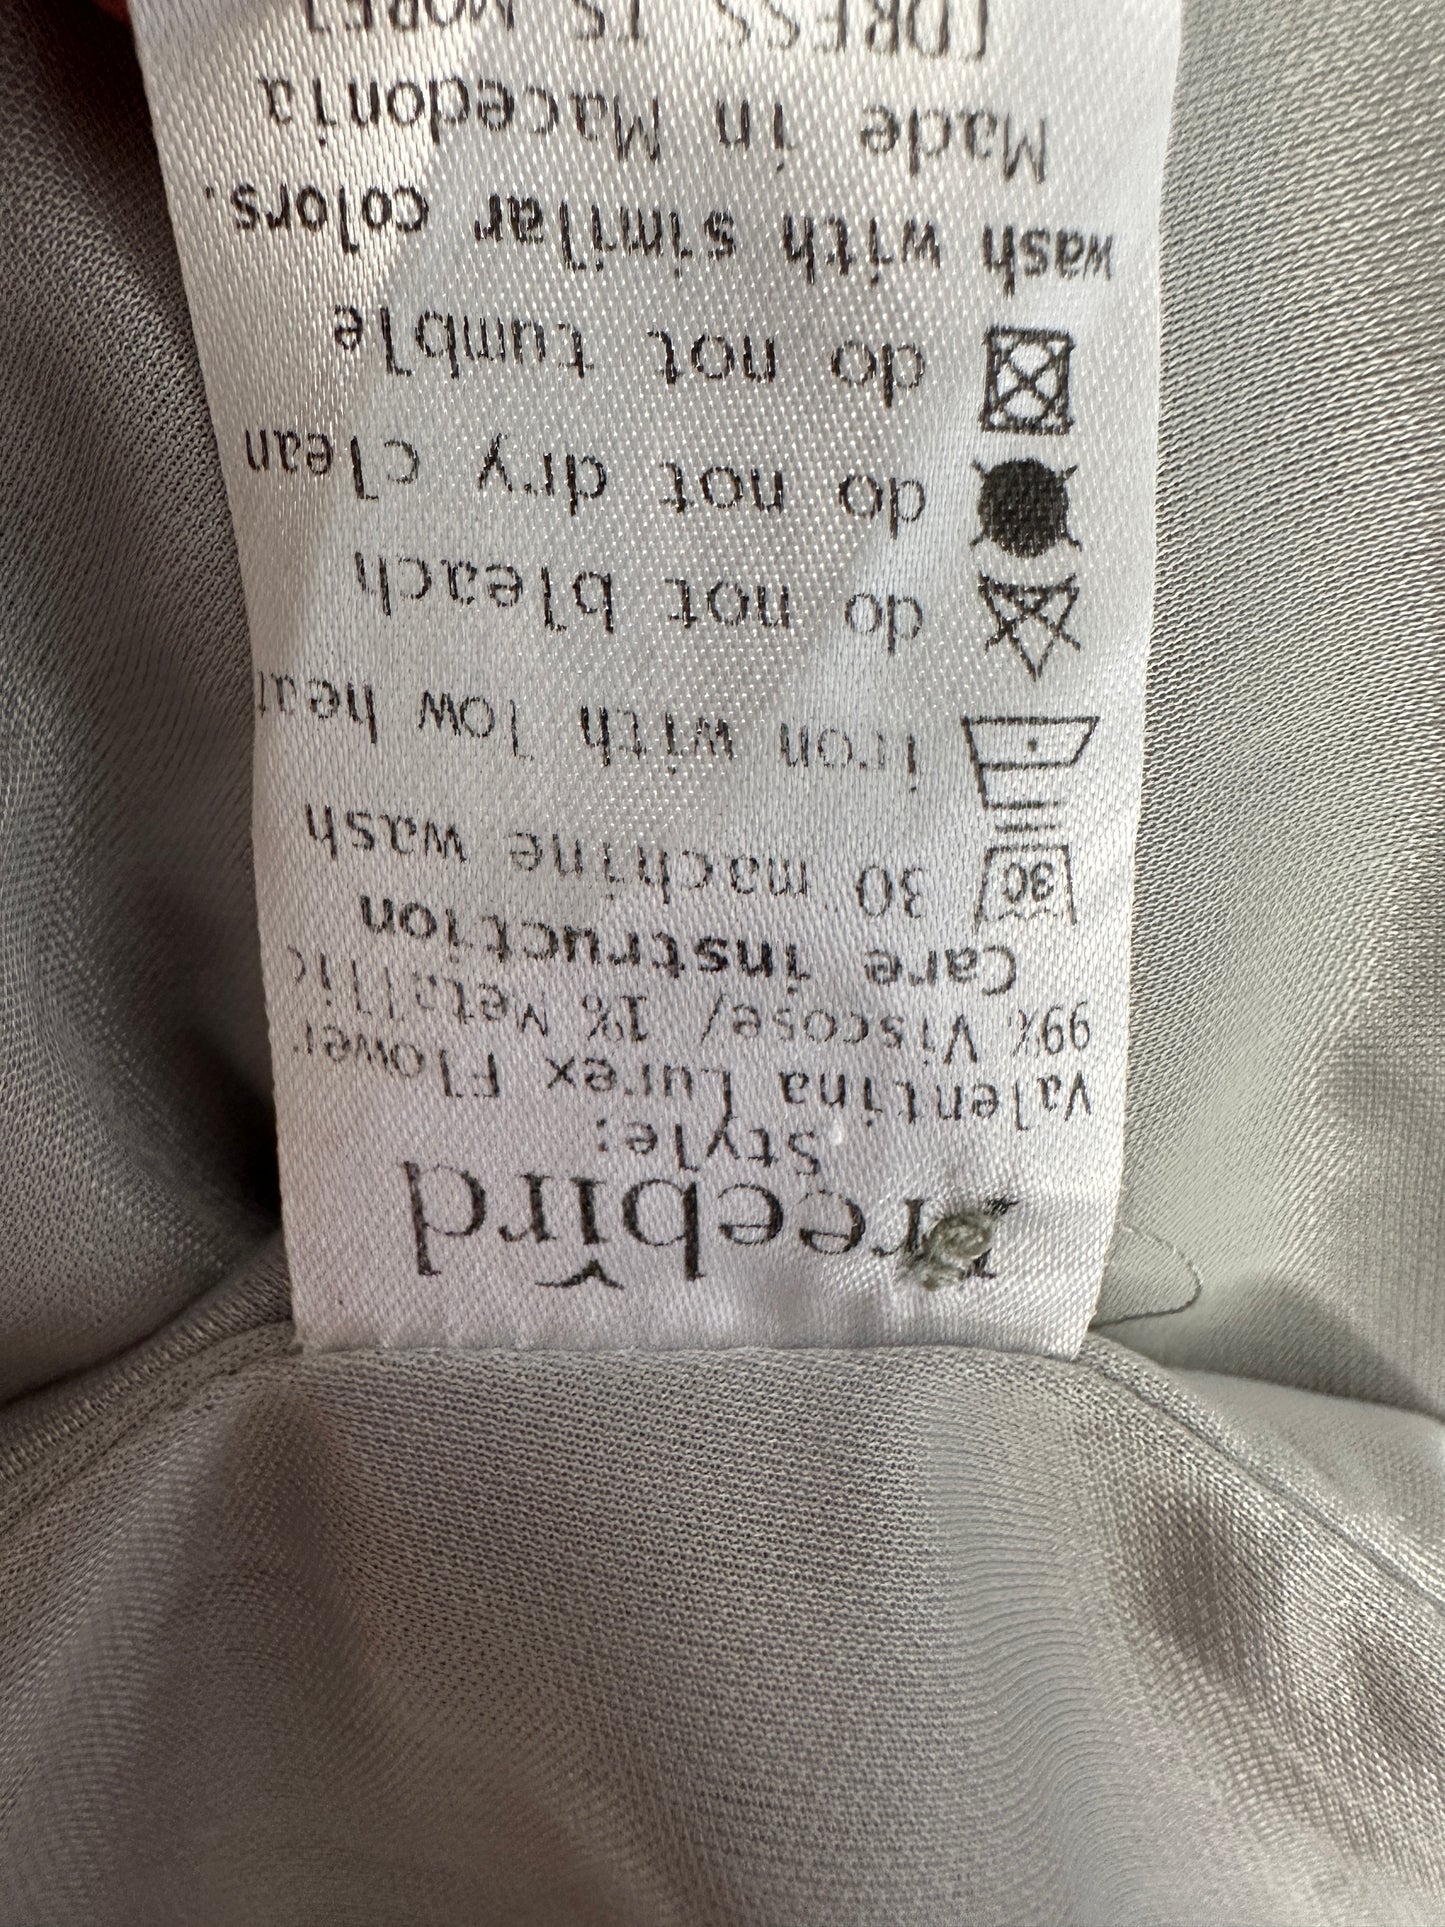 freebird
Style:
Valentina Lurex Flower
99% Viscose/ 1% Metallic
Care instruction
30 30 machine wash
iron with low heat
do not bleach
do not dry clean
do not tumble
wash with similar colors.
Made in Macedonia
[DRESS IS MORE]